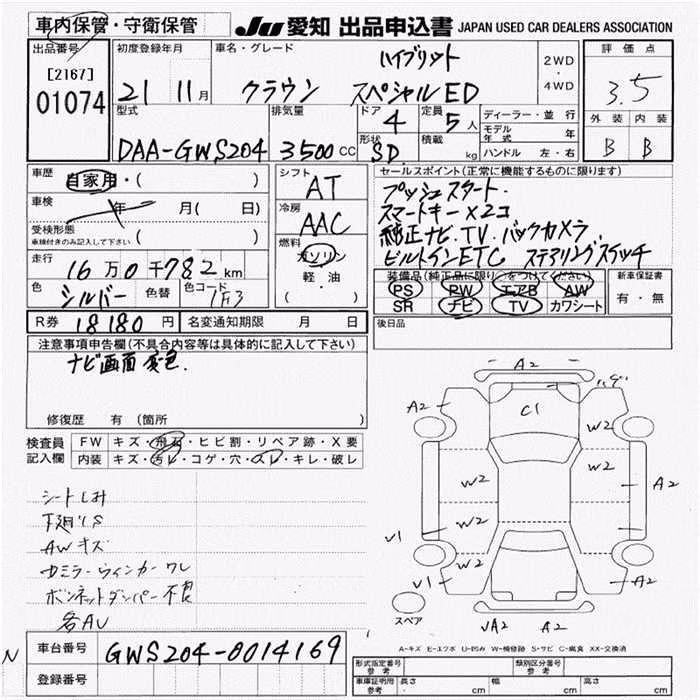 車内保管・守衛保管
JU 愛知 出品申込書 JAPAN USED CAR DEALERS ASSOCIATION
出品番号 初度登録年月 車名・グレード ハイブリット 2WD・4WD 評価点
[2167]
01074 21 11月 クラウン スペシャルED 3.5
型式 排気量 ドア 4 定員 5人 ディーラー・並行 外装 内装
モデル年式 年
DAA-GWS204 3500cc 形状 SD 積載 kg ハンドル 左・右 B B
車歴 自家用・( ) シフト AT セールスポイント(正常に機能するものに限ります)
プッシュスタート.
車検 年 月( 日) 冷房 AAC スマートキー×2コ
受検形態 ( ) 純正ナビ.TV.バックカメラ
車検付きのみ記入して下さい
燃料 ガソリン 軽油 ( ) ビルトインETC ステアリングスイッチ
走行 16万0千782km 装備品(純正品に限り○をつけてください) 新車保証書
色 シルバー 色替 色コード 1F3 PS PW エアB AW 有・無
SR ナビ TV カワシート
R券 18180円 名変通知期限 月 日 後日品
注意事項申告欄(不具合内容等は具体的に記入して下さい)
ナビ画面変色.
修復歴 有(箇所 )
検査員記入欄 FW キズ・飛石・ヒビ割・リペア跡・X要
内装 キズ・汚レ・コゲ・穴・スレ・キレ・破レ
シートしみ
下廻りS
AWキズ
Gミラーウィンカーワレ
ボンネットダンパー不良
各AU
A2
C1
A2
W2
W2
W2
A2
W2
V1
V1
A2
スペア
UA2 A2
A-キズ E-エクボ U-凹み W-補修跡 S-サビ C-腐食 XX-交換済
N 車台番号 GWS204-0014169
登録番号
形式指定番号 参考 類別区分番号 参考
車庫証明用 参考 長さ cm 幅 cm 高さ cm